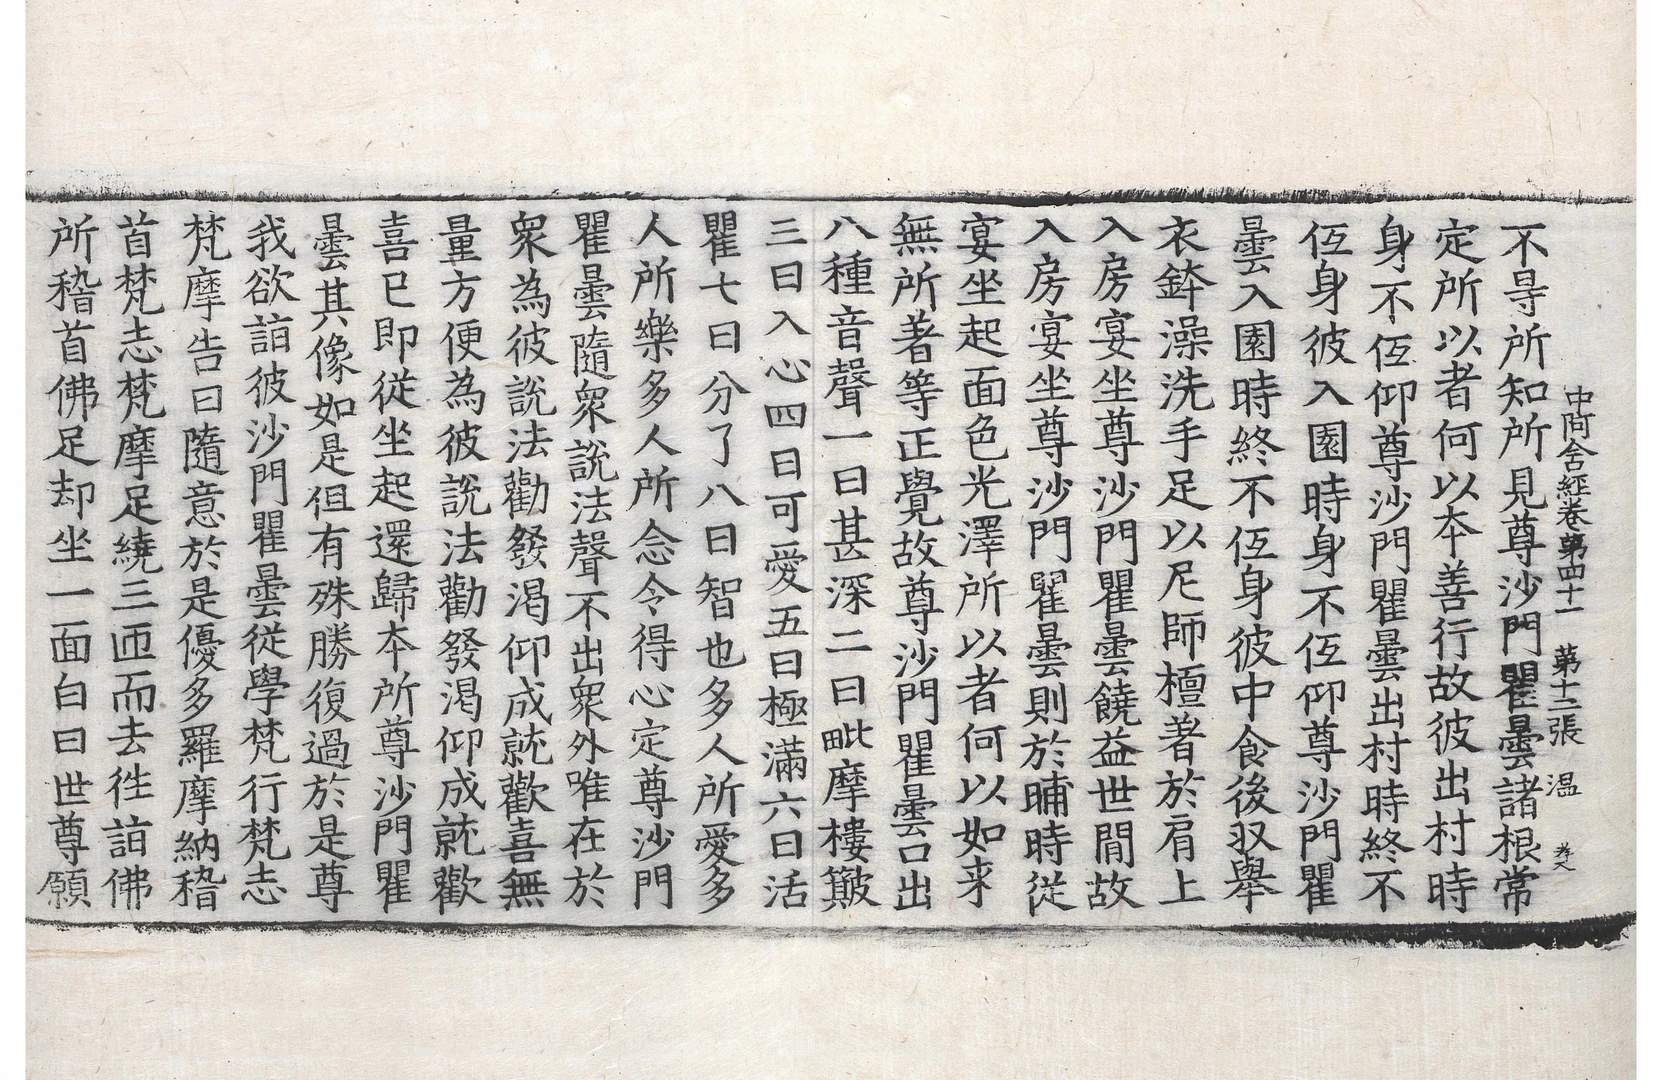 中阿含經卷第四十一　第十二張　溫
不㝵所知所見尊沙門瞿曇諸根常
定所以者何以本善行故彼出村時
身不㐰仰尊沙門瞿曇出村時終不
㐰身彼入園時身不㐰仰尊沙門瞿
曇入園時終不㐰身彼中食後収舉
衣鉢澡洗手足以尼師檀著於肩上
入房宴坐尊沙門瞿曇饒益世閒故
入房宴坐尊沙門瞿曇則於晡時従
宴坐起面色光澤所以者何以如来
無所著等正覺故尊沙門瞿曇口出
八種音聲一曰甚深二曰毗摩樓簸
三曰入心四曰可愛五曰極滿六曰活
瞿七曰分了八曰智也多人所愛多
人所樂多人所念令得心定尊沙門
瞿曇隨衆說法聲不出衆外唯在於
衆為彼說法勸發渴仰成就歡喜無
量方便為彼說法勸發渴仰成就歡
喜已即從坐起還歸本所尊沙門瞿
曇其像如是但有殊勝復過於是尊
我欲詣彼沙門瞿曇従學梵行梵志
梵摩告曰隨意於是優多羅摩納稽
首梵志梵摩足繞三匝而去往詣佛
所稽首佛足却坐一面白曰世尊願